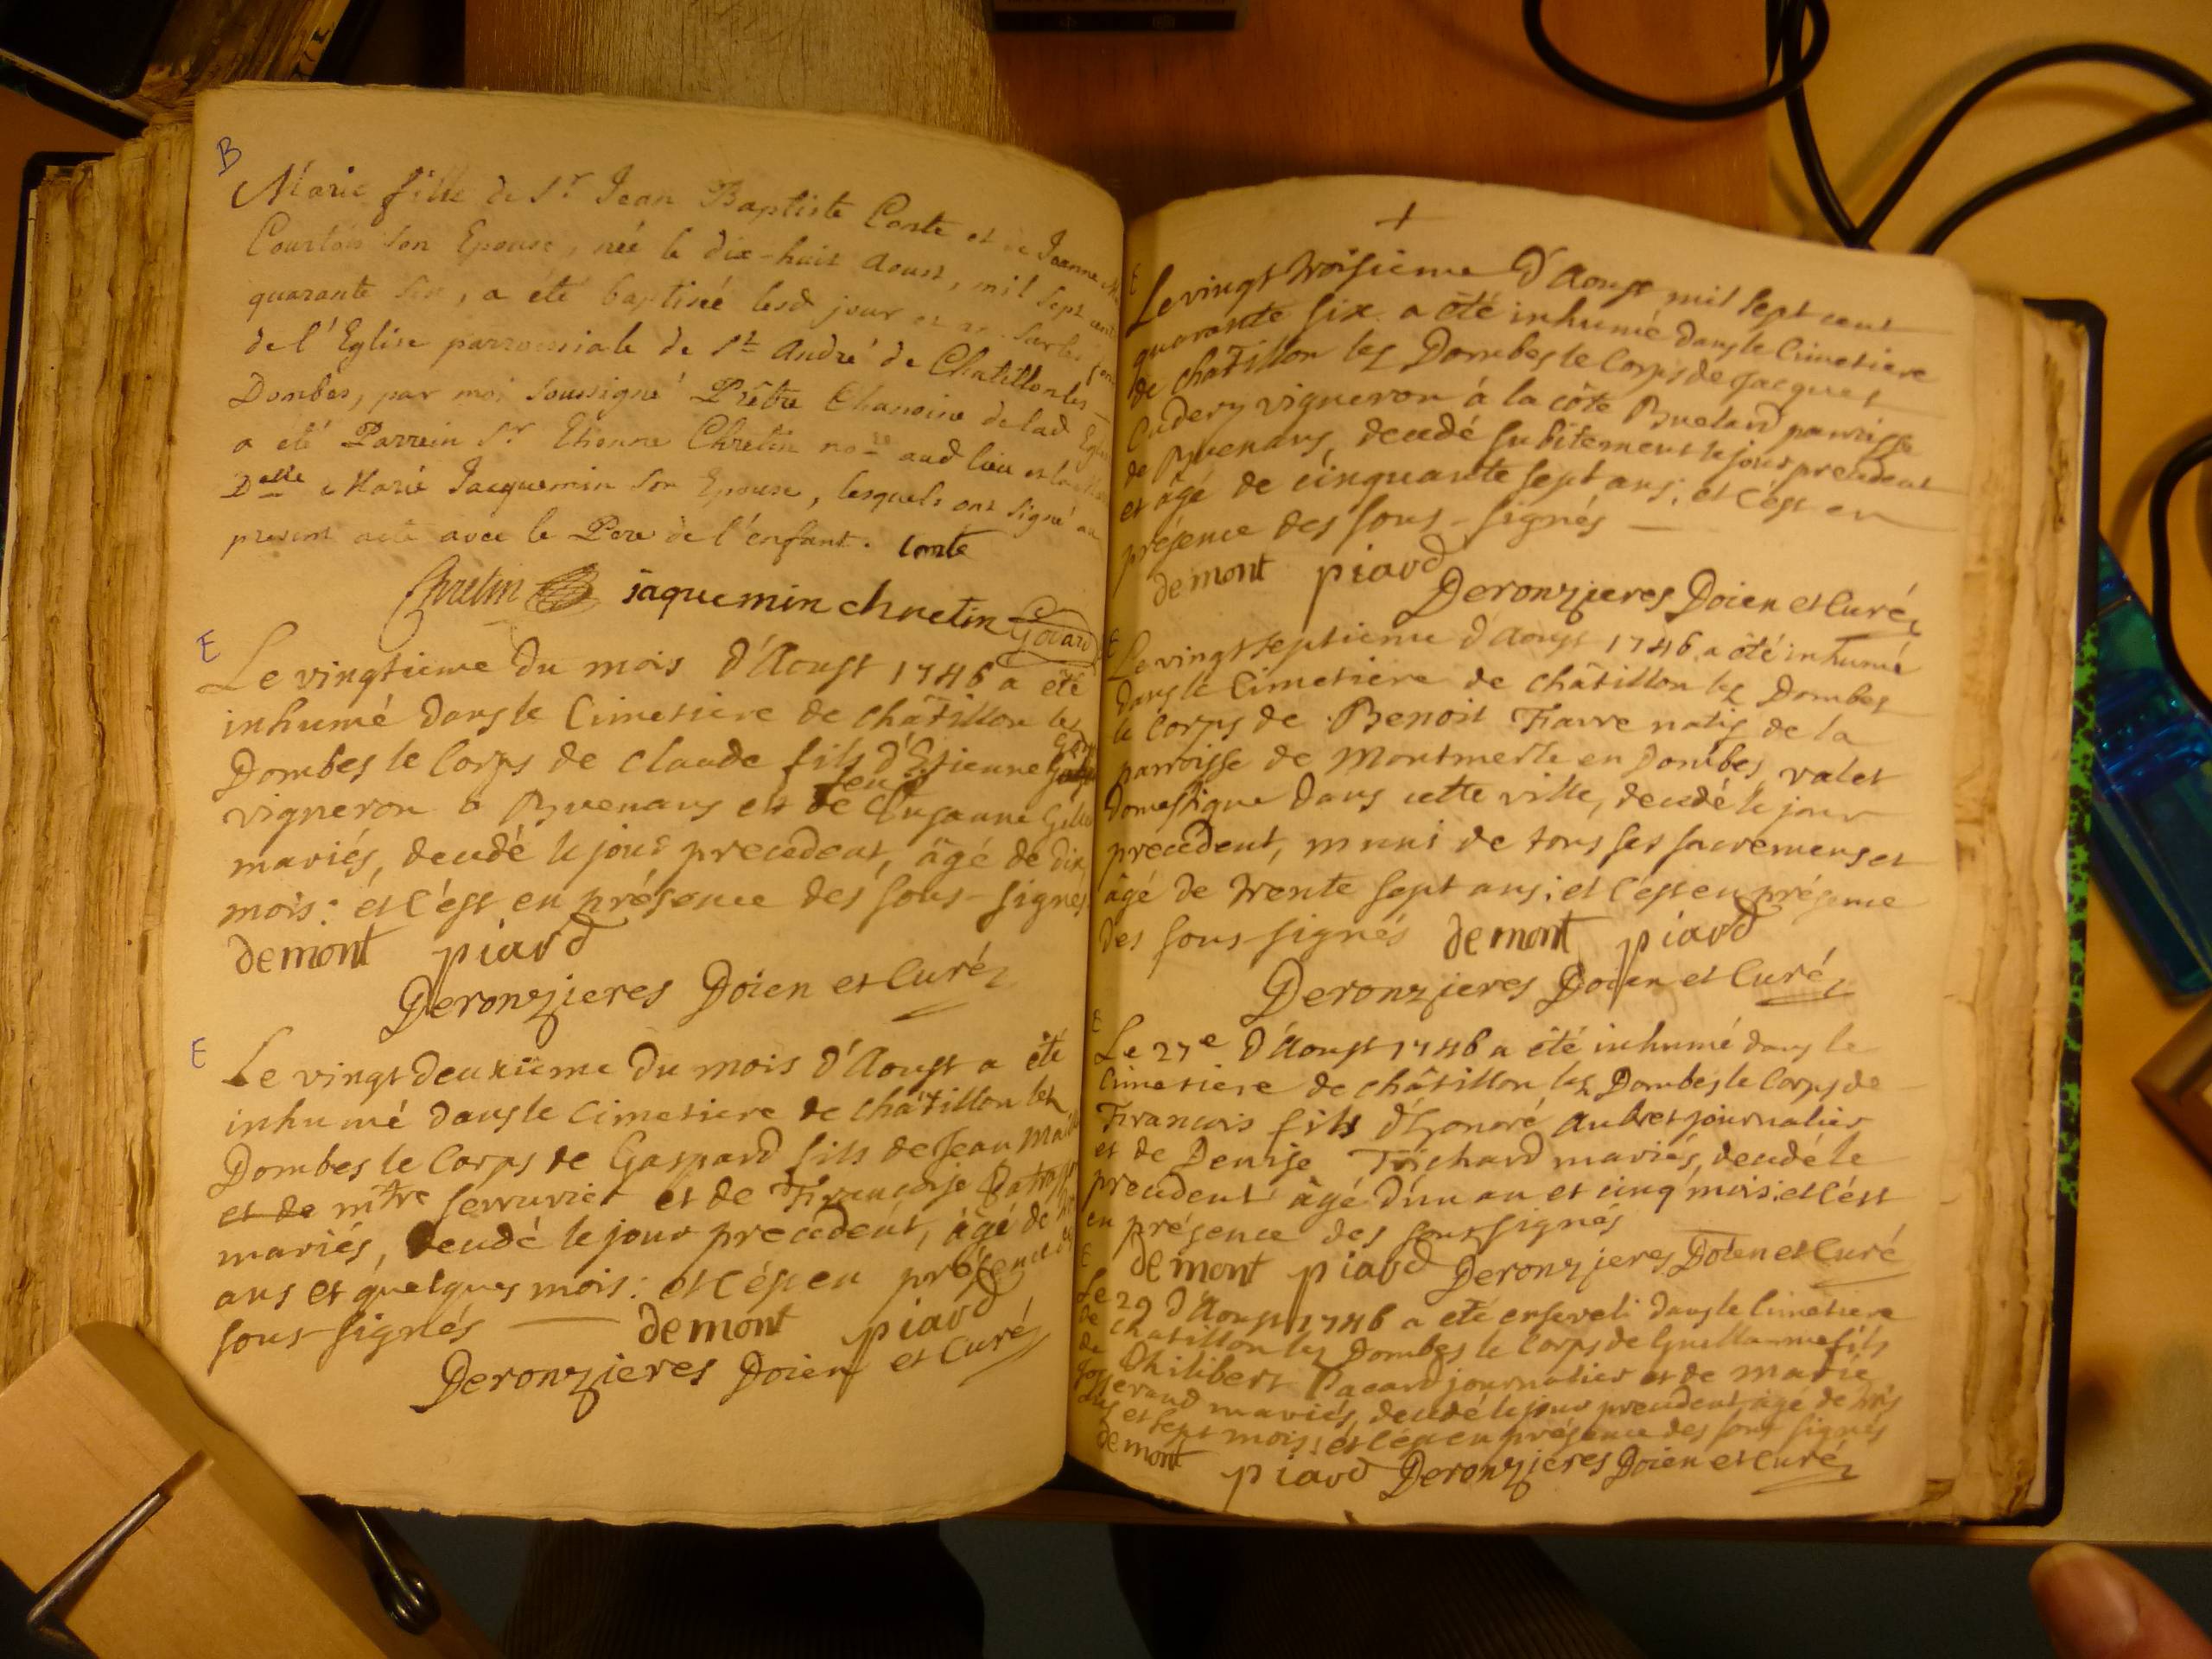 B
Marie fille de Sr Jean Baptiste Conte et de Jeanne
Courtois son Epouse, née le dix-huit Aoust, mil sept cent
quarante six, a été baptisée lesd jour et an sur les fons
de l'Eglise parroissiale de St André de Chatillon les
Dombes, par moi soussigné Prêtre Chanoine de lad Eglise
a été Parrein Sr Etienne Chretin nore aud lieu et la
Delle Marie Jacquemin son Epouse, lesquels ont signé au
present acte avec le Pere de l'enfant. Conte
Chretin jaquemin chretin Govard
E
Le vingtieme du mois d'Aoust 1746 a été
inhumé dans le Cimetiere de châtillon les
Dombes le Corps de claude fils d'Etienne
vigneron a Buenans et de feuë Susanne
mariés, decedé le jour precedent, âgé de dix
mois: et c'est en présence des sous-signés
demont piard
Deronzieres Doien et Curé
E
Le vingt deuxiême du mois d'Aoust a êté
inhumé dans le cimetiere de châtillon les
Dombes le Corps de Gaspard fils de Jean
et de mtre serrurier et de Françoise
mariés, decedé le jour precedent, âgé de
ans et quelques mois: et c'est en présence des
sous-signés demont piard
Deronzieres Doien et Curé
+
E
Le vingt troisieme d'Aoust mil sept cent
quarante six a été inhumé dans le Cimetiere
de châtillon les Dombes le Corps de Jacques
Cadery vigneron á la côte Buelard parroisse
de Buenans, decedé subitement le jour precedent
et âgé de cinquante sept ans; et c'est en
présence des sous-signés
demont piard
Deronzieres Doien et Curé
E
Le vingt septieme d'Aoust 1746 a été inhumé
dans le Cimetiere de châtillon les Dombes
le Corps de Benoit Fiavre natif de la
parroisse de Montmerle en Dombes, valet
Domestique dans cette ville, decedé le jour
precedent, muni de tous ses sacremens et
âgé de trente sept ans; et c'est en présence
des sous-signés demont piard
Deronzieres Doien et Curé
E
Le 27e d'Aoust 1746 a été inhumé dans le
Cimetiere de châtillon les Dombes le Corps de
François fils d'honoré Aubret journalier
et de Denise Trichard mariés, decedé le
precedent âgé d'un an et cinq mois: et c'est
en présence des sous signés
demont piard Deronzieres Doien et Curé
E
Le 29 d'Aoust 1746 a été enseveli dans le Cimetiere
de chatillon les Dombes le Corps de Guillaume fils
de Philibert Pacard journalier et de marie
Josserand mariés, decedé le jour precedent âgé de trois
ans et sept mois; et c'est en présence des sous signés
demont piard Deronzieres Doien et Curé